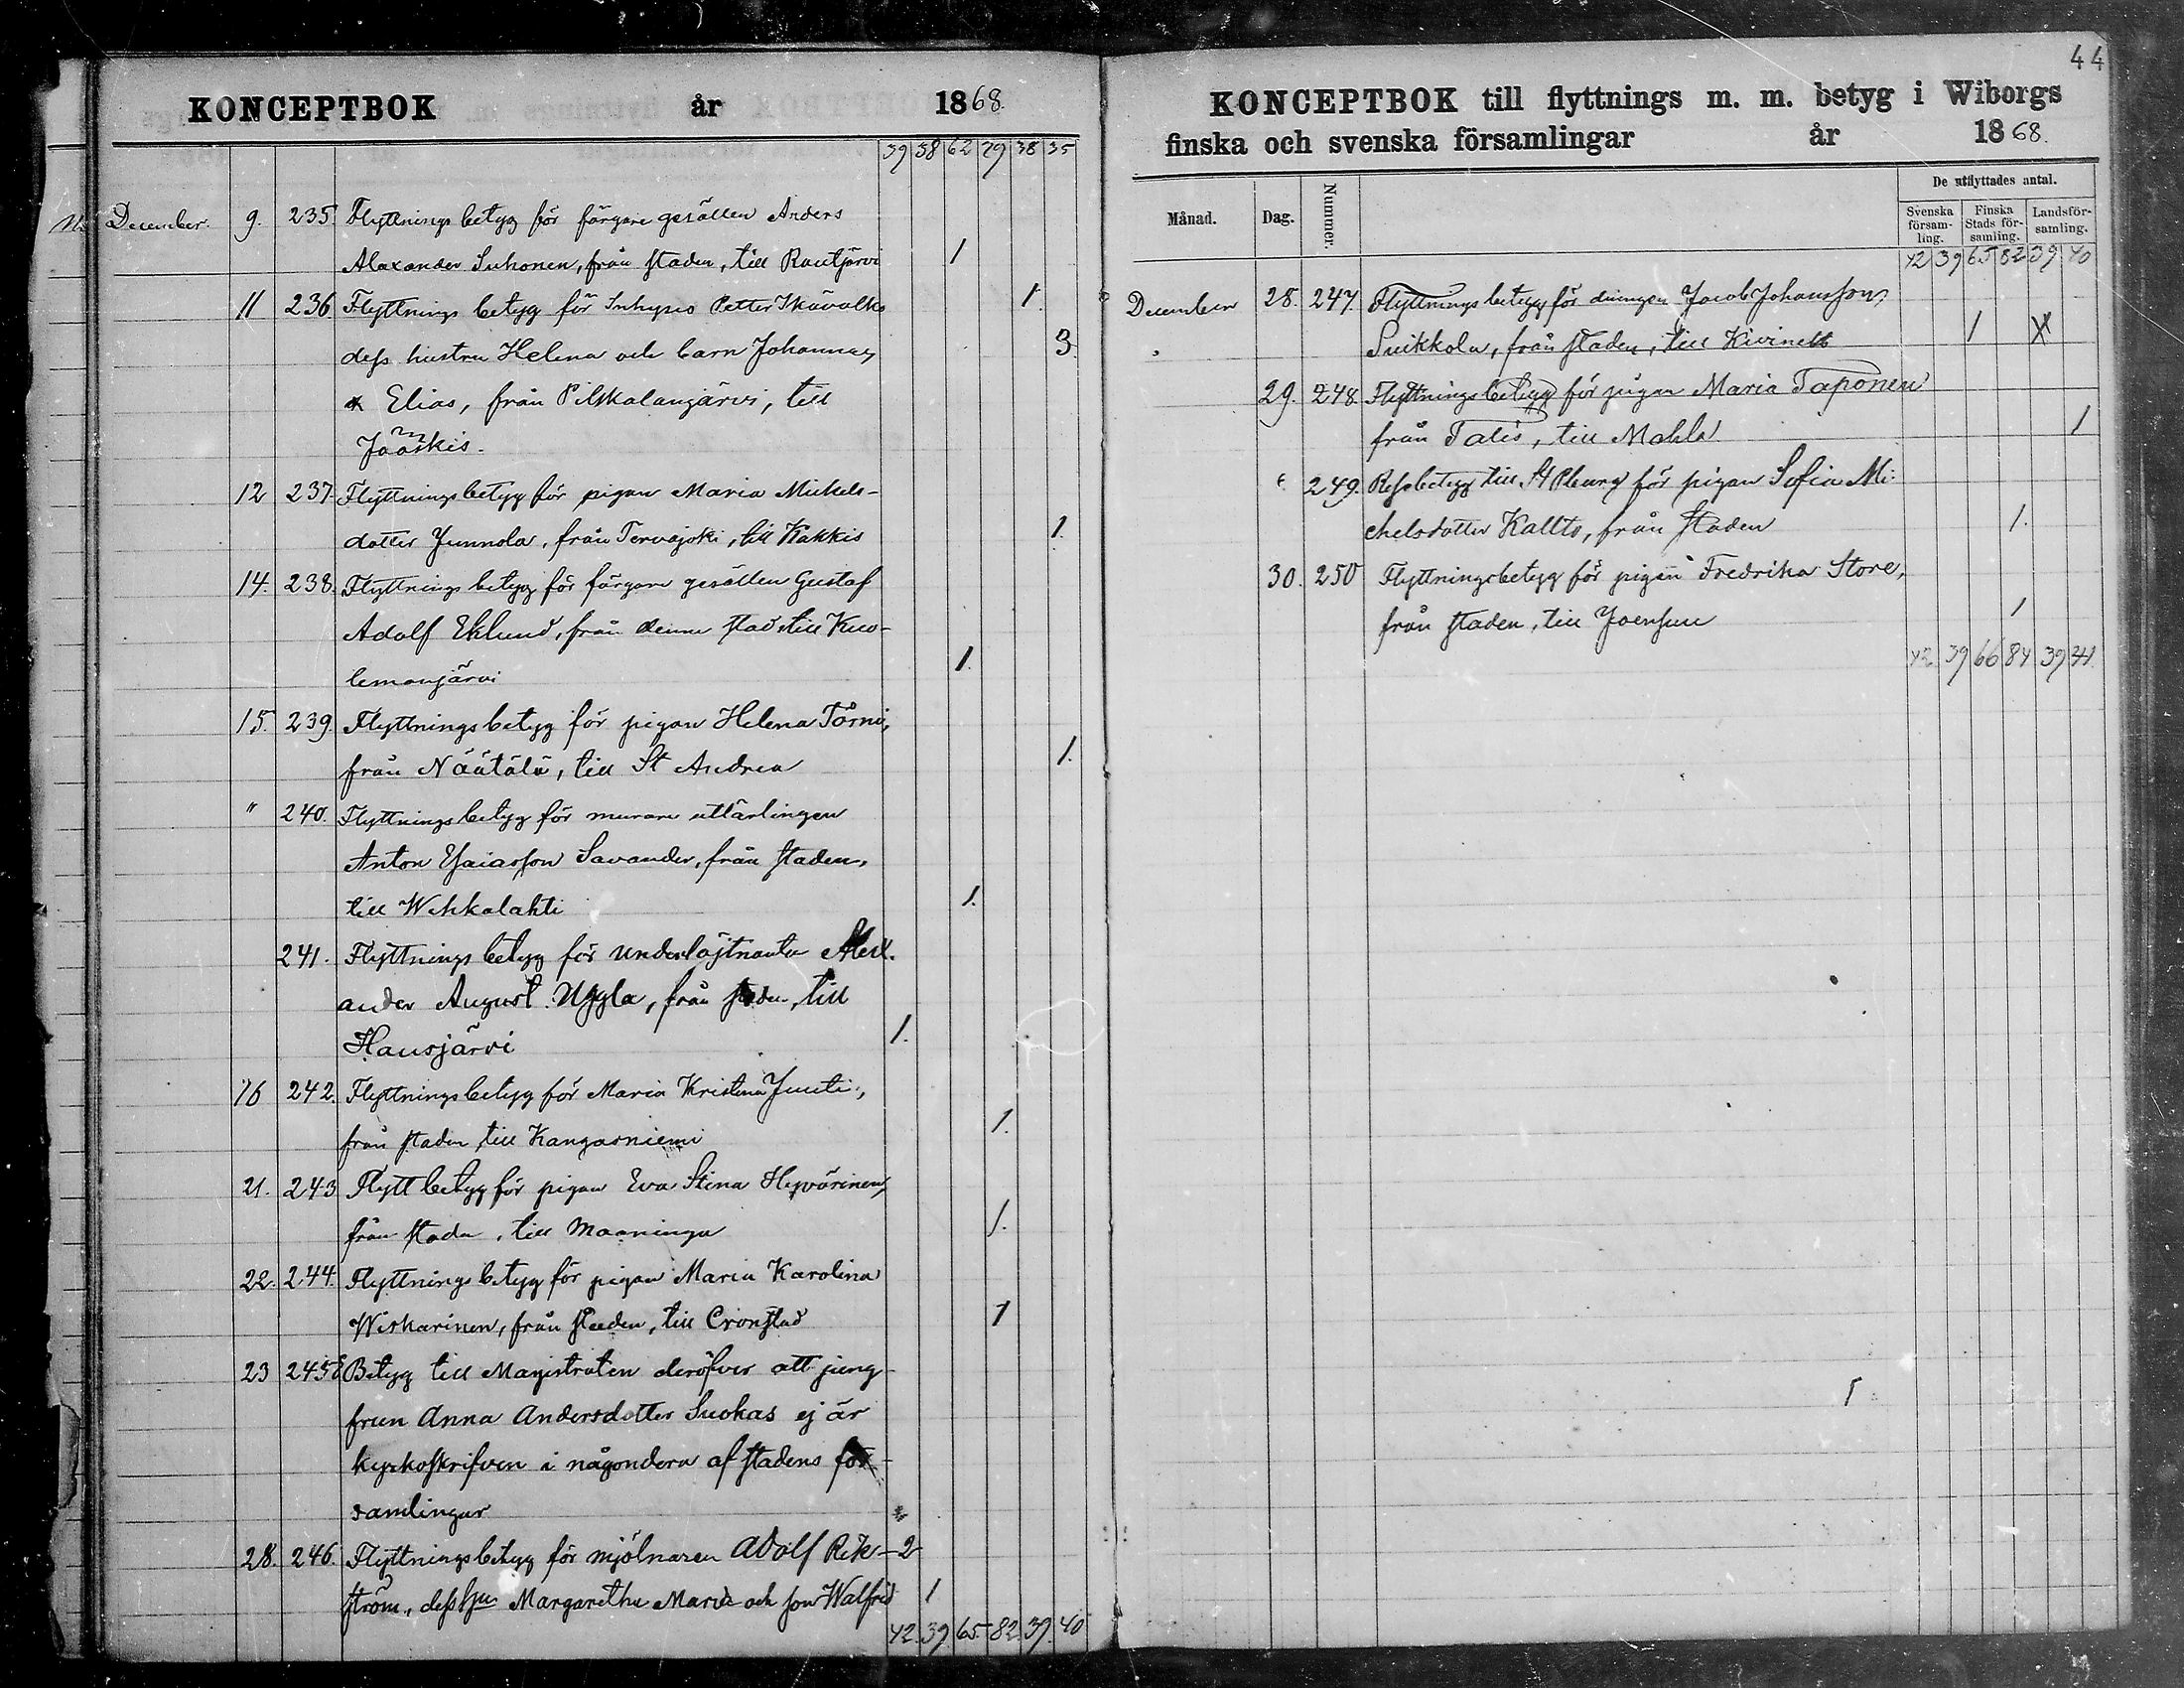 KONCEPTBOK år 1868.
39 38 62 79 38 35
December. 9. 235. Flyttnings betyg för färgare gesällen Anders
Alexander Suhonen, från staden, till Rautjärvi 1
11 236. Flyttnings betyg för Inhyses Petter Skävalks 1.
dess hustru Helena och barn Johannes, 3
Elias, från Pilskalanjärvi, till
Jääskis.
12 237. Flyttningsbetyg för pigan Maria Mickels-
dotter Junnola, från Tervajoki, till Kakkis 1.
14. 238. Flyttnings betyg för färgare gesällen Gustaf
Adolf Eklund, från denna stad till Kuo-
lemanjärvi 1.
15. 239. Flyttningsbetyg för pigan Helena Törni,
från Näätälä, till St Andrea 1.
" 240. Flyttningsbetyg för murare utlärlingen
Anton Esaiasson Savander, från staden,
till Wehkalahti 1.
241. Flyttnings betyg för underlöjtnanten Alex-
ander August Uggla, från staden, till
Hausjärvi 1.
16 242. Flyttningsbetyg för Maria Kristina Juuti,
från staden till Kangasniemi 1.
21. 243 Flytt betyg för pigan Eva Stina Hyvärinen,
från staden, till Maaninga 1.
22. 244. Flyttningsbetyg för pigan Maria Karolina
Wiskarinen, från staden, till Cronstad 1
23 245 Betyg till Magistraten deröfver att jung-
frun Anna Andersdotter Suokas ej är
kyrkoskrifven i någondera af stadens för-
samlingar
28. 246. Flyttningsbetyg för mjölnaren Adolf Rik- 2
ström, dess hu Margaretha Maria och son Walfrid 1
42. 39 65. 82. 39. 40
44
KONCEPTBOK till flyttnings m. m. betyg i Wiborgs
finska och svenska församlingar år 1868.
Månad. Dag. Nummer. De utflyttades antal.
Svenska försam-ling. Finska Stads för-samling. Landsför-samling.
42 39 65 82 39 40
December 28. 247. Flyttnings betyg för drängen Jacob Johansson
Suikkola, från staden, till Kivineb 1
29. 248. Flyttningsbetyg för pigan Maria Taponen
från Talis, till Mohla 1
249. Resebetyg till St Pburg för pigan Sofia Mi-
chelsdotter Kallto, från staden 1.
30. 250 Flyttningsbetyg för pigan Fredrika Store,
från staden, till Joensuu 1
42 39 66 84 39 41.